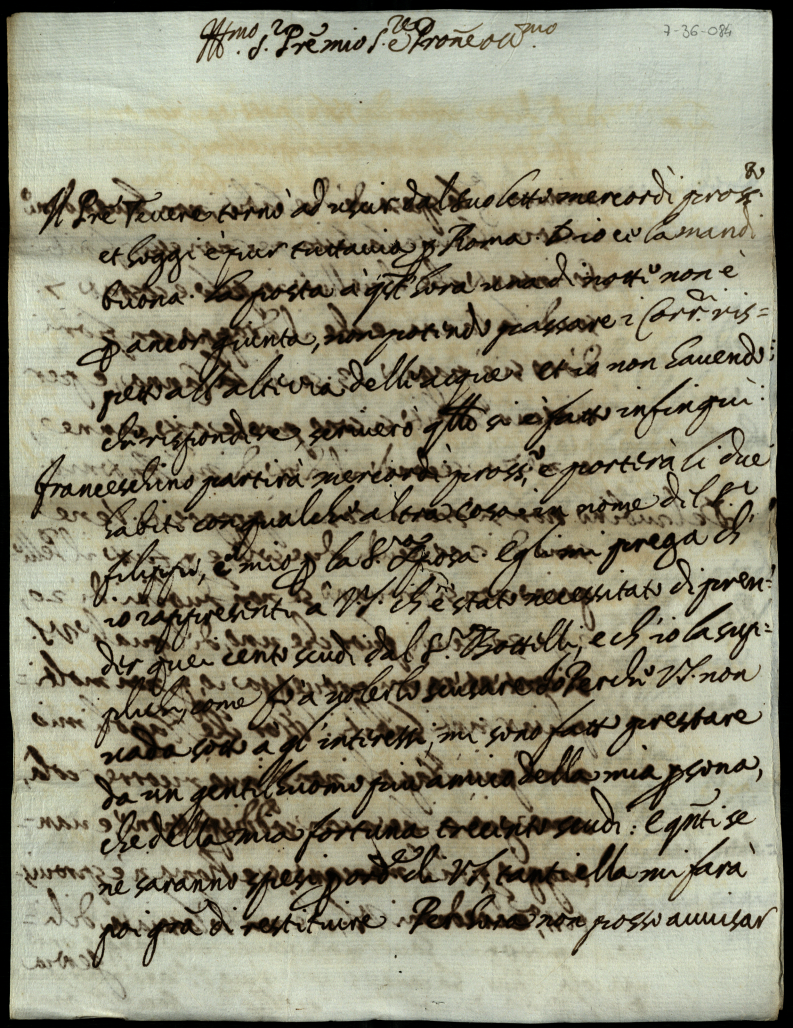 Ill.mo S.r P.rẽ mio S.re e P.rone oss.mo
7-36-084
Il P.re Tevere tornò ad uscir dal suo letto mercordì pross.
et hoggi è pur tuttavia p Roma. Dio ce la mandi
buona. La posta à qst' hora una di notte non è
p ancor giunta, non potendo passare i Corr.ri ris=
petto all'altezza delle acque. et io non havendo
che rispondere, scriverò qllo si è fatto infin qui:
Franceschino partirà mercordì pross.o e porterà li due
habiti con qualche altra cosa in nome del S.r
Filippo, e mio p la S.ra Sposa. Egli mi prega ch'
io rappresenti a VS. ch'è stato necessitato di pren=
der quei cento scudi dal S.r Bottelli, e ch'io la sup=
plichi, come fo a volerlo scusare. Perche VS. non
vada sotto a gl'interessi, mi sono fatto prestare
da un gentilhuomo più amico della mia psona,
che della mia fortuna trecento scudi: e qnti se
ne saranno spesi p ord.e di VS, tanti ella mi farà
poi gra di restituire. Per hora non posso avvisar